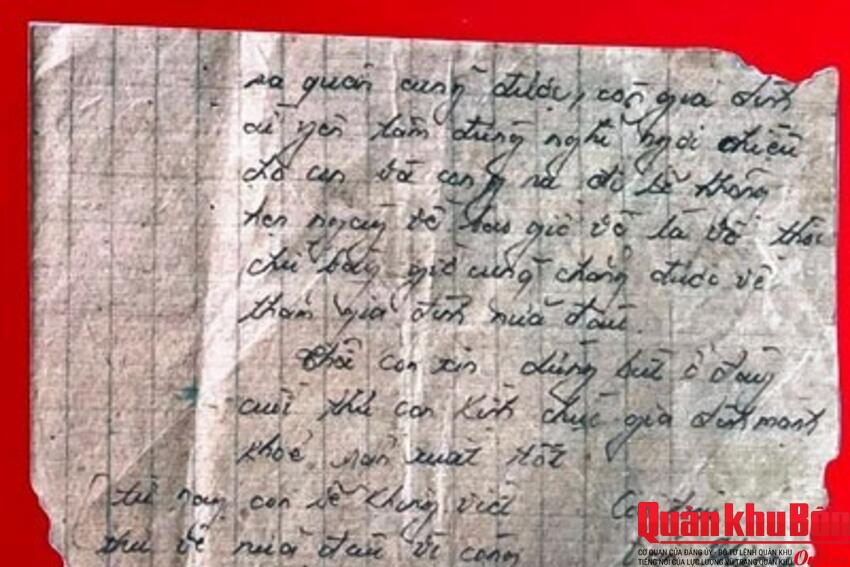 ra quân cũng được, còn gia đình
cứ yên tâm đừng nghĩ ngợi nhiều
cho con và con ra đi sẽ không
hẹn ngày về bao giờ về là về thôi
chứ bây giờ cũng chẳng được về
thăm gia đình nữa đâu.
Thôi con xin dừng bút ở đây
cuối thư con kính chúc gia đình mạnh
khoẻ sản xuất tốt.
(từ nay con sẽ không viết
thư về nữa đâu vì công
Quân khu Bốn
CƠ QUAN CỦA ĐẢNG ỦY - BỘ TƯ LỆNH QUÂN KHU
TIẾNG NÓI CỦA LỰC LƯỢNG VŨ TRANG QUÂN KHU